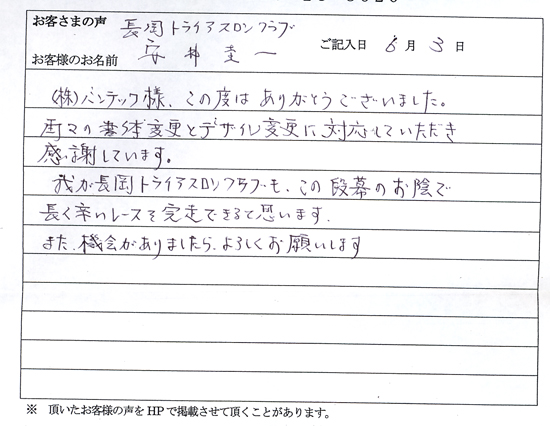 お客さまの声 長岡トライアスロンクラブ
お客様のお名前 安井圭一 ご記入日 6月3日
(株)バンテック様、この度はありがとうございました。
度々の書体変更とデザイン変更に対応していただき
感謝しています。
我が長岡トライアスロンクラブも、この段幕のお陰で
長く辛いレースを完走できると思います。
また、機会がありましたら、よろしくお願いします
※ 頂いたお客様の声をHPで掲載させて頂くことがあります。